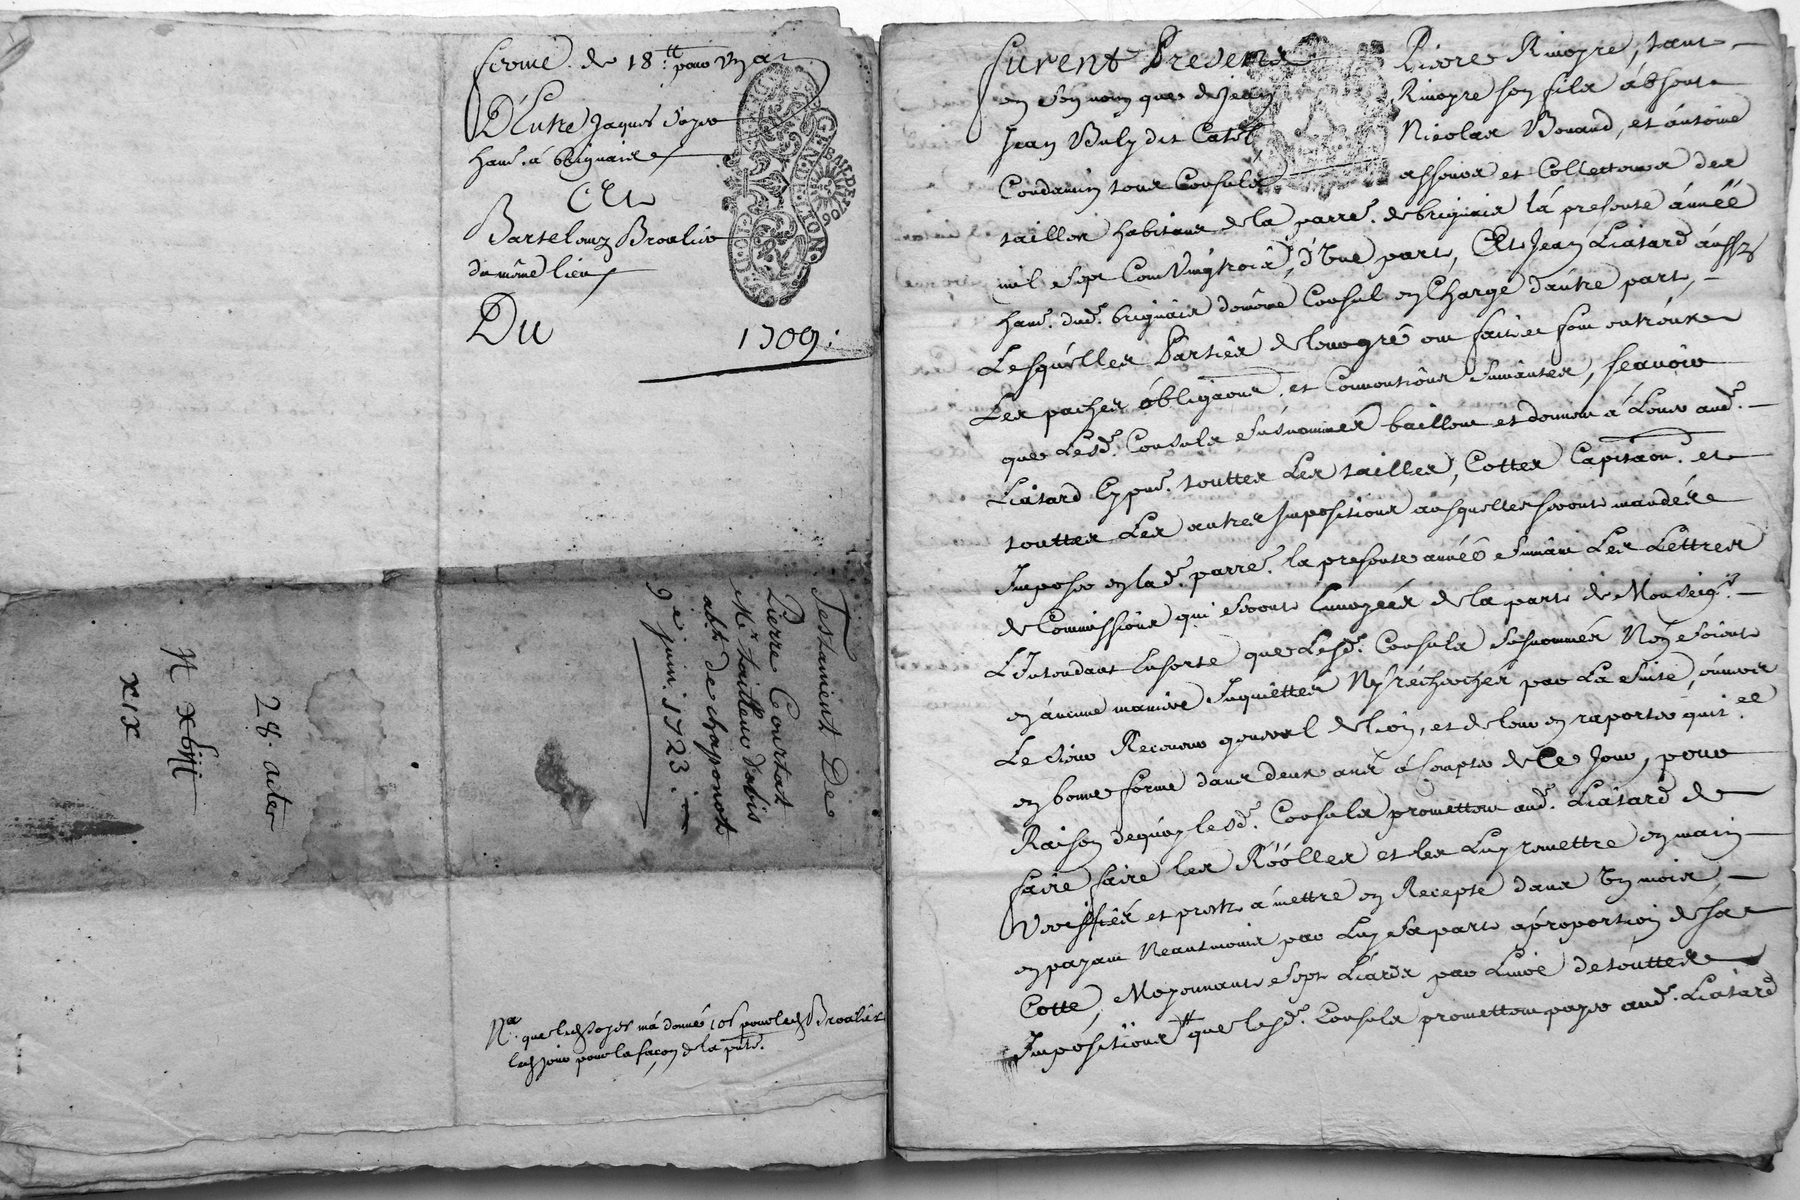 ferme de 18tt pour un an
D'Entre Jaques
hant. á brignais
Et
Bartelemy Broalier
du même lieu
Du 1709.
GEN. DE LION
Testament De
Pierre Courtat
Mr. tailleur d'abis
abt. de chapponost
9e juin 1723.
28. actes
N xbiij
xix
Na. que led Soyer má donné 10s pour led Broalier
led jour pour la façon de la pnte.
furent Presens Pierre Rivoyre, tant
en són nom que de Jean Rivoyre son fils ábsent
Jean Buly dit Catel Nicolas Bonand, et ántoine
Condamin tous Consuls asseurs et Collecteurs des
tailles habitans de la parre. de brignais lá presente ánnéë
mil Sept Cent Vingtrois, d'Une part, Et Jean Liatard áussy
hant. dud. brignais demême Consul en Charge d'aútre part,
Lesquélles Párties de leur gré ont fait et font entréux
Les paches óbligãons. et Conventions Suivantes, sçavoir
que Lesd. Consuls Susnommés baillent et donnent á Lever aud.
Liatard Cy pnt. touttes Les tailles, Cottes Capitãon. et
touttes Les autres Impositions ausquelles seront mandées
Imposer en lad. parre. la presente année Suivant Les Lettres
de Commissions qui Seront Envoyées de la part de Monseigr.
L'Intendant Ensorte que Lesd. Consuls Susnommés N'en Soient
en áucune maniere Inquiettés Ny réchercher par La Suite, énvers
Le Sieur Receveur general de lion, et de leur en raporter quit.ce
en bonne forme dans deux ans á Compter de Ce Jour, pour
Raison dequoy lesd. Consuls promettent aud. Liatard de
faire faire les Róolles et les Luy remettre en main
Veriffiés et prests á mettre en Recepte dans Un mois,
en payant Neantmoins par Luy Sa part á proportion de sa
Cotte, Moyennant Sept Liards par Livre de touttes
Impositions que lesd. Consuls promettent payer aud. Liatard